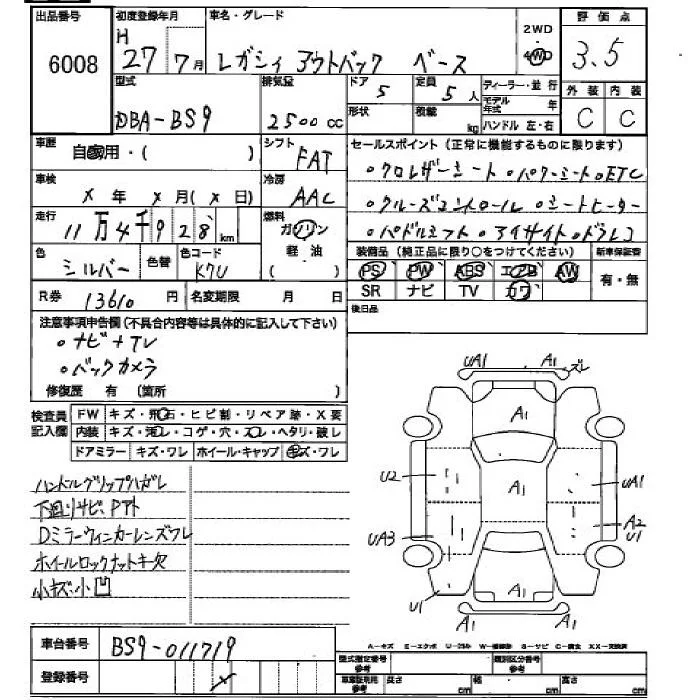 出品番号 初度登録年月 車名・グレード 2WD 評価点
6008 H 27年 7月 レガシィ アウトバック ベース 4WD 3.5
型式 排気量 ドア 定員 ディーラー・並行 外装 内装
DBA-BS9 2500cc 5 5人 モデル年式 年 C C
形状 積載 kg ハンドル 左・右
車歴 自家用・( ) シフト FAT セールスポイント(正常に機能するものに限ります)
車検 X年 X月(X日) 冷房 AAC ○クロレザーシート ○パワーシート ○ETC
走行 11万4千928km 燃料 ガソリン 軽油 ( ) ○クルーズコントロール ○シートヒーター
○パドルシフト ○アイサイト ○ドラレコ
色 シルバー 色替 色コード K7U 装備品(純正品に限り○をつけてください) 新車保証書
PS PW ABS エアB AW 有・無
R券 13610円 名変期限 月 日 SR ナビ TV カワ
注意事項申告欄(不具合内容等は具体的に記入して下さい) 後日品
○ナビ+TV
○バックカメラ
修復歴 有 (箇所 )
検査員記入欄 FW キズ・飛石・ヒビ割・リペア跡・X要
内装 キズ・汚レ・コゲ・穴・スレ・ヘタリ・破レ
ドアミラー キズ・ワレ ホイール・キャップ キズ・ワレ
ハンドルグリップハガレ
下廻リサビ、Pアト
Dミラーウィンカーレンズワレ
ホイールロックナットキー欠
小キズ・小凹
UA1 A1 ズレ
A1
U2 A1 UA1
UA3 A2 U1
U1 A1 A1
A1 A1
車台番号 BS9-011719
A-キズ E-エクボ U-凹み W-補修跡 S-サビ C-腐食 XX-交換済
登録番号 X
型式指定番号 類別区分番号
車庫証明用参考 長さ cm 軽参考 幅 cm 高さ cm